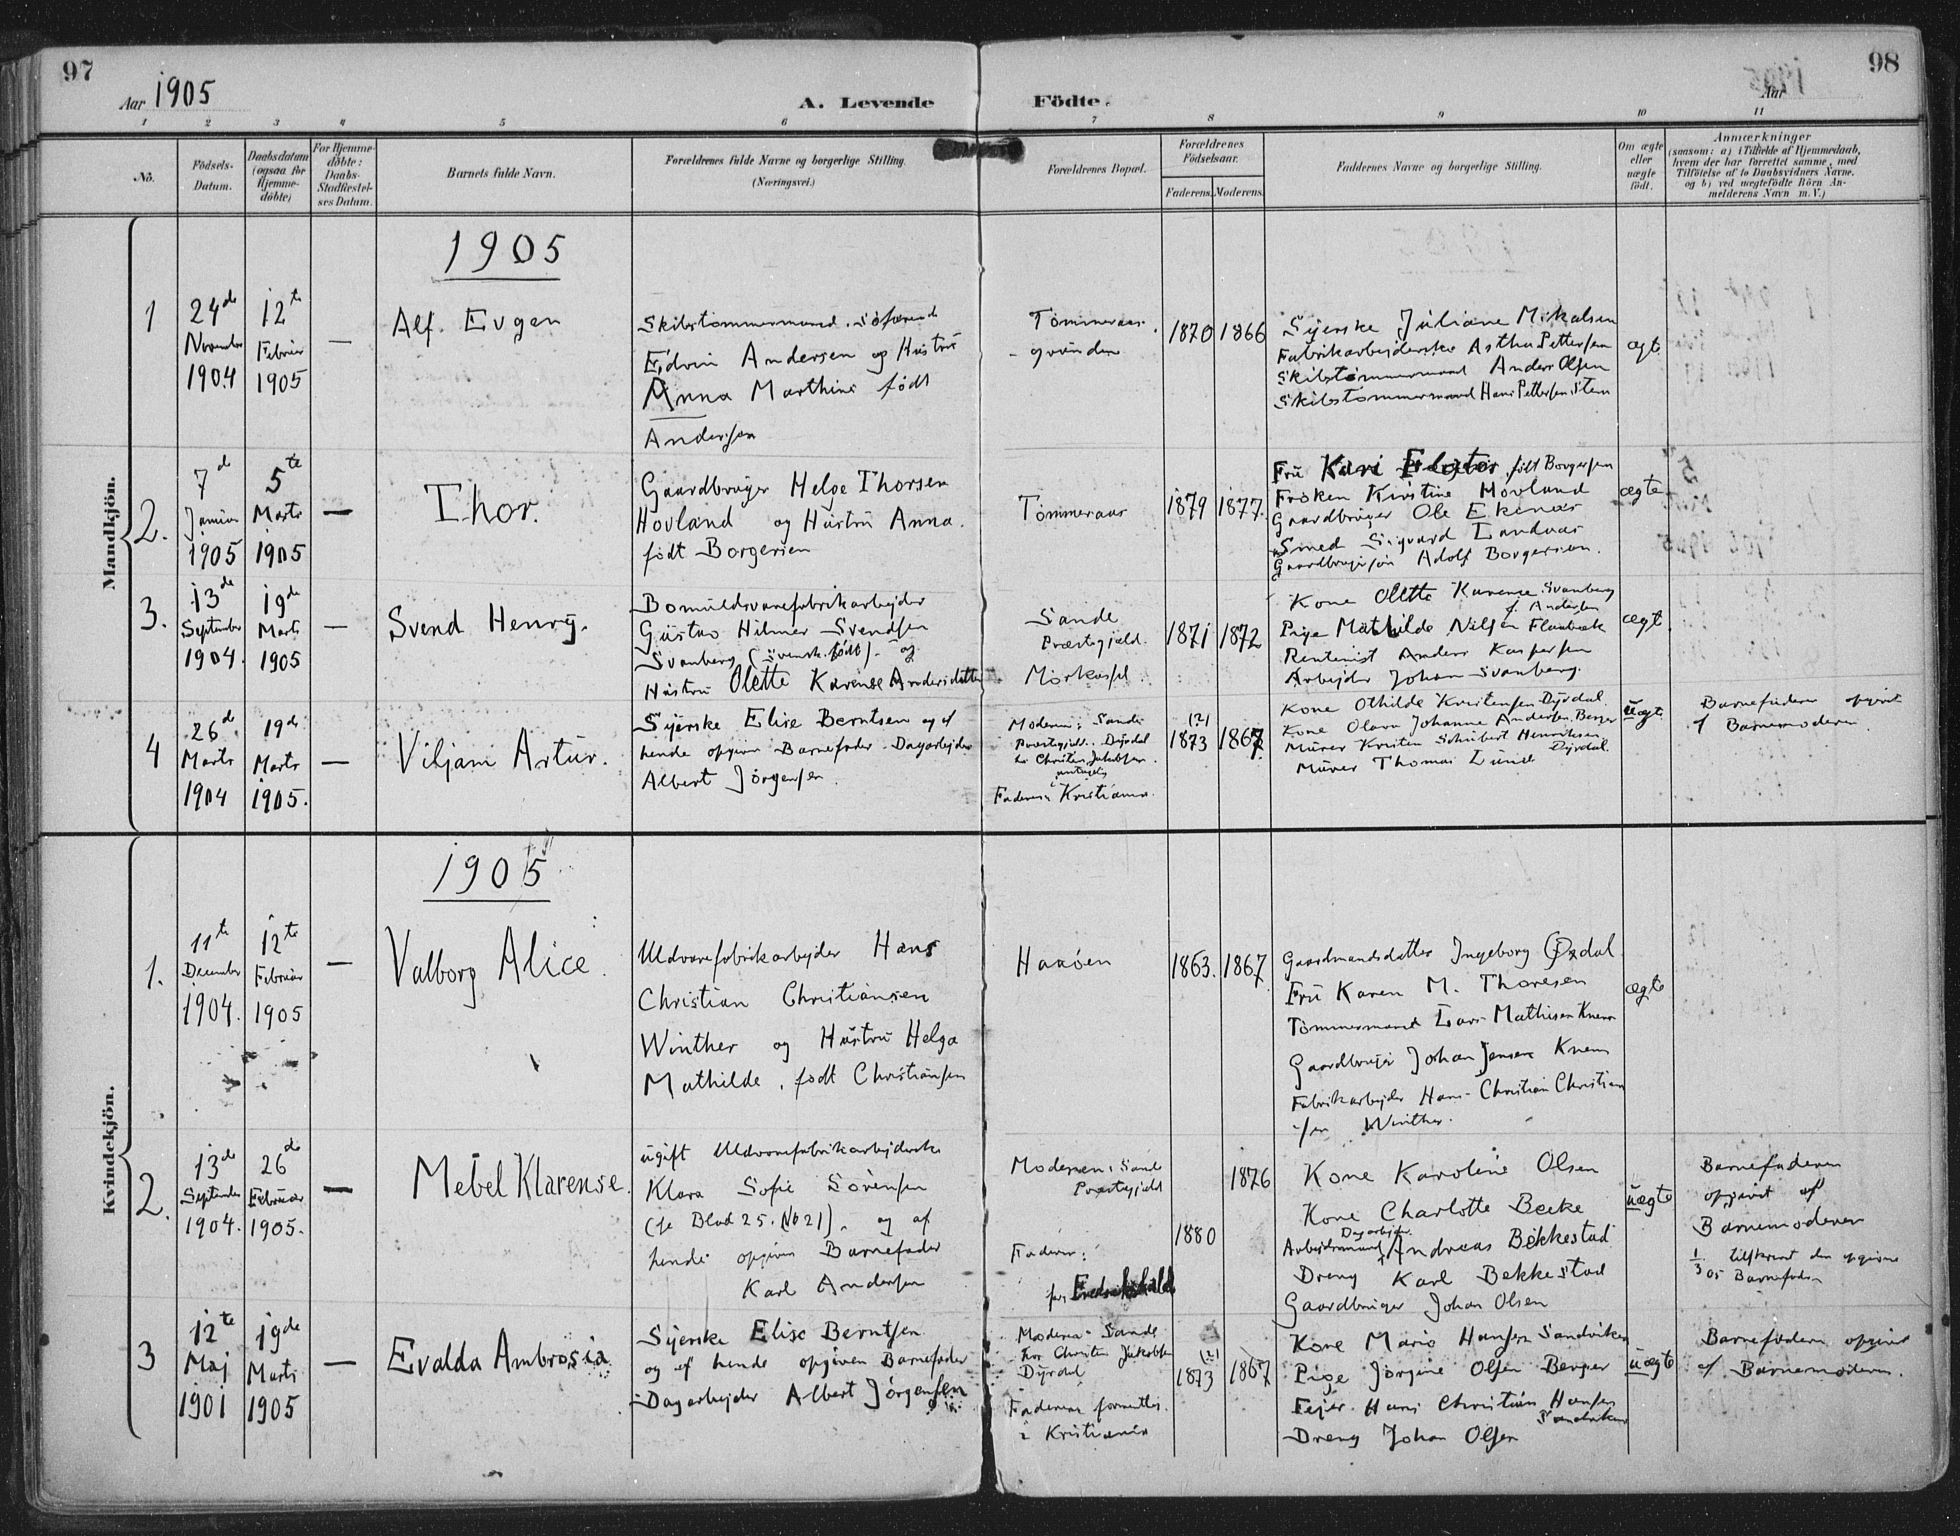 97
98
Aar 1905
A. Levende Födte.
Aar 1905
1 2 3 4 5 6 7 8 9 10 11
No.
Födsels-
Datum.
Daabsdatum
(ogsaa for
Hjemme-
döbte)
For Hjemme-
döbte:
Daabs-
Stadfæstel-
ses Datum.
Barnets fulde Navn.
Forældrenes fulde Navne og borgerlige Stilling.
(Næringsvei.)
Forældrenes Bopæl.
Forældrenes
Födselsaar.
Faderens. Moderens.
Faddernes Navne og borgerlige Stilling.
Om ægte
eller
uægte
födt.
Anmærkninger
(saasom: a) i Tilfælde af Hjemmedaab,
hvem der har forrettet samme, med
Tilföielse af to Daabsvidners Navne.
og b) ved uægtefödte Börn An-
melderens Navn m. V.)
Mandkjön.
1905
1
24de
November
1904
12te
Februar
1905
—
Alf. Eugen
Skibstømmermand, Søfarende
Edvin Andersen og Hustru
Anna Marthine født
Andersen
Tømmeraas-
grunden
1870
1866
Syerske Juliane Mikalsen
Fabrikarbejderske Astha Pettersen
Skibstømmermand Anders Olsen
Skibstømmermand Hans Pettersen Steen
ægt
2.
7de
Januar
1905
5te
Marts
1905
—
Thor.
Gaardbruger Helge Thorsen
Hovland og Hustru Anna.
født Borgersen
Tømmeraas
1879
1877.
Fru Kari født Borgersen
Frøken Kirstine Hovland
Gaardbruger Ole Ekenæs
Smed Sigvard Landvas
Adolf Borgersen.
ægte
3.
13de
September
1904.
19de
Marts
1905
—
Svend Henry.
Bomuldsvarefabrikarbejder
Gustav Hilmer Svendsen
Svanberg (svensk født). og
Hustru Olette Karense Andersdatter
Sande
Præstegjeld.
1871
1872
Kone Olette Karense Svanberg
f. Andersen
Pige Mathilde Nilsen Flaabæk
Rentenist Anders Kaspersen
Arbejder Johan Svanberg.
ægt
4
26de
Marts
1904
19de
Marts
1905.
—
Viljam Artur.
Syerske Elise Berntsen og af
hende opgiven Barnefader Dagarbejder
Albert Jørgensen.
Moderen: Sande
Præstegjeld. Dyrdal
hr Christen Jakobsen
Faderen: Kristiania.
(?)
1873
1867.
Kone Othilde Kristensen Dyrdal.
Kone Olava Johanne Andersen Berger
Murer Kristen Schubert Henriksen
Dyrdal
Murer Thomas Lund
uægt
Barnefaderen opgivet
af Barnemoderen.
Kvindekjön.
1905
1.
11te
December
1904.
12te
Februar
1905
—
Valborg Alice.
Uldvarefabrikarbejder Hans
Christian Christiansen
Winther og Hustru Helga
Mathilde. født Christiansen
Haaøen
1863.
1867
Gaardmandsdatter Ingeborg Øxdal.
Fru Karen M. Thoresen
Tømmermand Lars Mathisen Knem
Gaardbruger Johan Jensen Knem
Fabrikarbejder Hans-Christian Christian
-sen Winther.
ægte
2.
13de
September
1904.
26de
Februar
1905.
—
Mebel Klarense.
ugift Uldvarefabrikarbejderske
Klara Sofie Sørensen
(se Blad 25. No 21). og af
hende opgiven Barnefader
Karl Andersen
Moderen: Sande
Præstegjeld
Faderen:
Fredrikshald
1880
1876
Kone Karoline Olsen
Kone Charlotte Becke
Dagarbejder
Arbejdsmand Andreas Bekkestad
Dreng Karl Bekkestad
Gaardbruger Johan Olsen
uægte
Barnefaderen
opgivet af
Barnemoderen
1/3 05 tilskrevet den opgivne
Barnefader
3
12te
Maj
1901
19de
Marts
1905
—
Evalda Ambrosia
Syerske Elise Berntsen
og af hende opgiven Barnefader
Dagarbejder Albert Jørgensen
Moderen: Sande
hos Christen Jakobsen
Dyrdal
Faderen formentlig
i Kristiania
(?)
1873
1867
Kone Marie Hansen Sandviken
Pige Jørgine Olsen Berger
Fejer Hans Christian Hansen
Sandviken
Dreng Johan Olsen
uægte
Barnefaderen opgivet
af Barnemoderen.